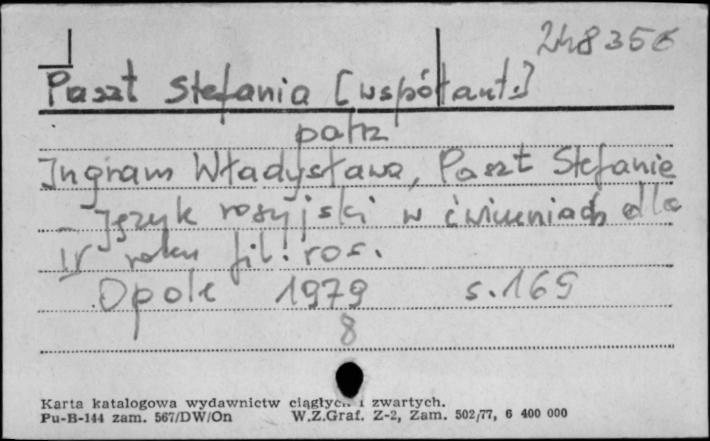 248356
Paszt Stefania [współaut.]
patrz
Ingram Władysława, Paszt Stefania
Język rosyjski w ćwiczeniach dla
IV roku fil. ros.
Opole 1979 s. 169
8
Karta katalogowa wydawnictw ciągłych i zwartych.
Pu-B-144 zam. 567/DW/On W.Z.Graf. Z-2, Zam. 502/77, 6 400 000